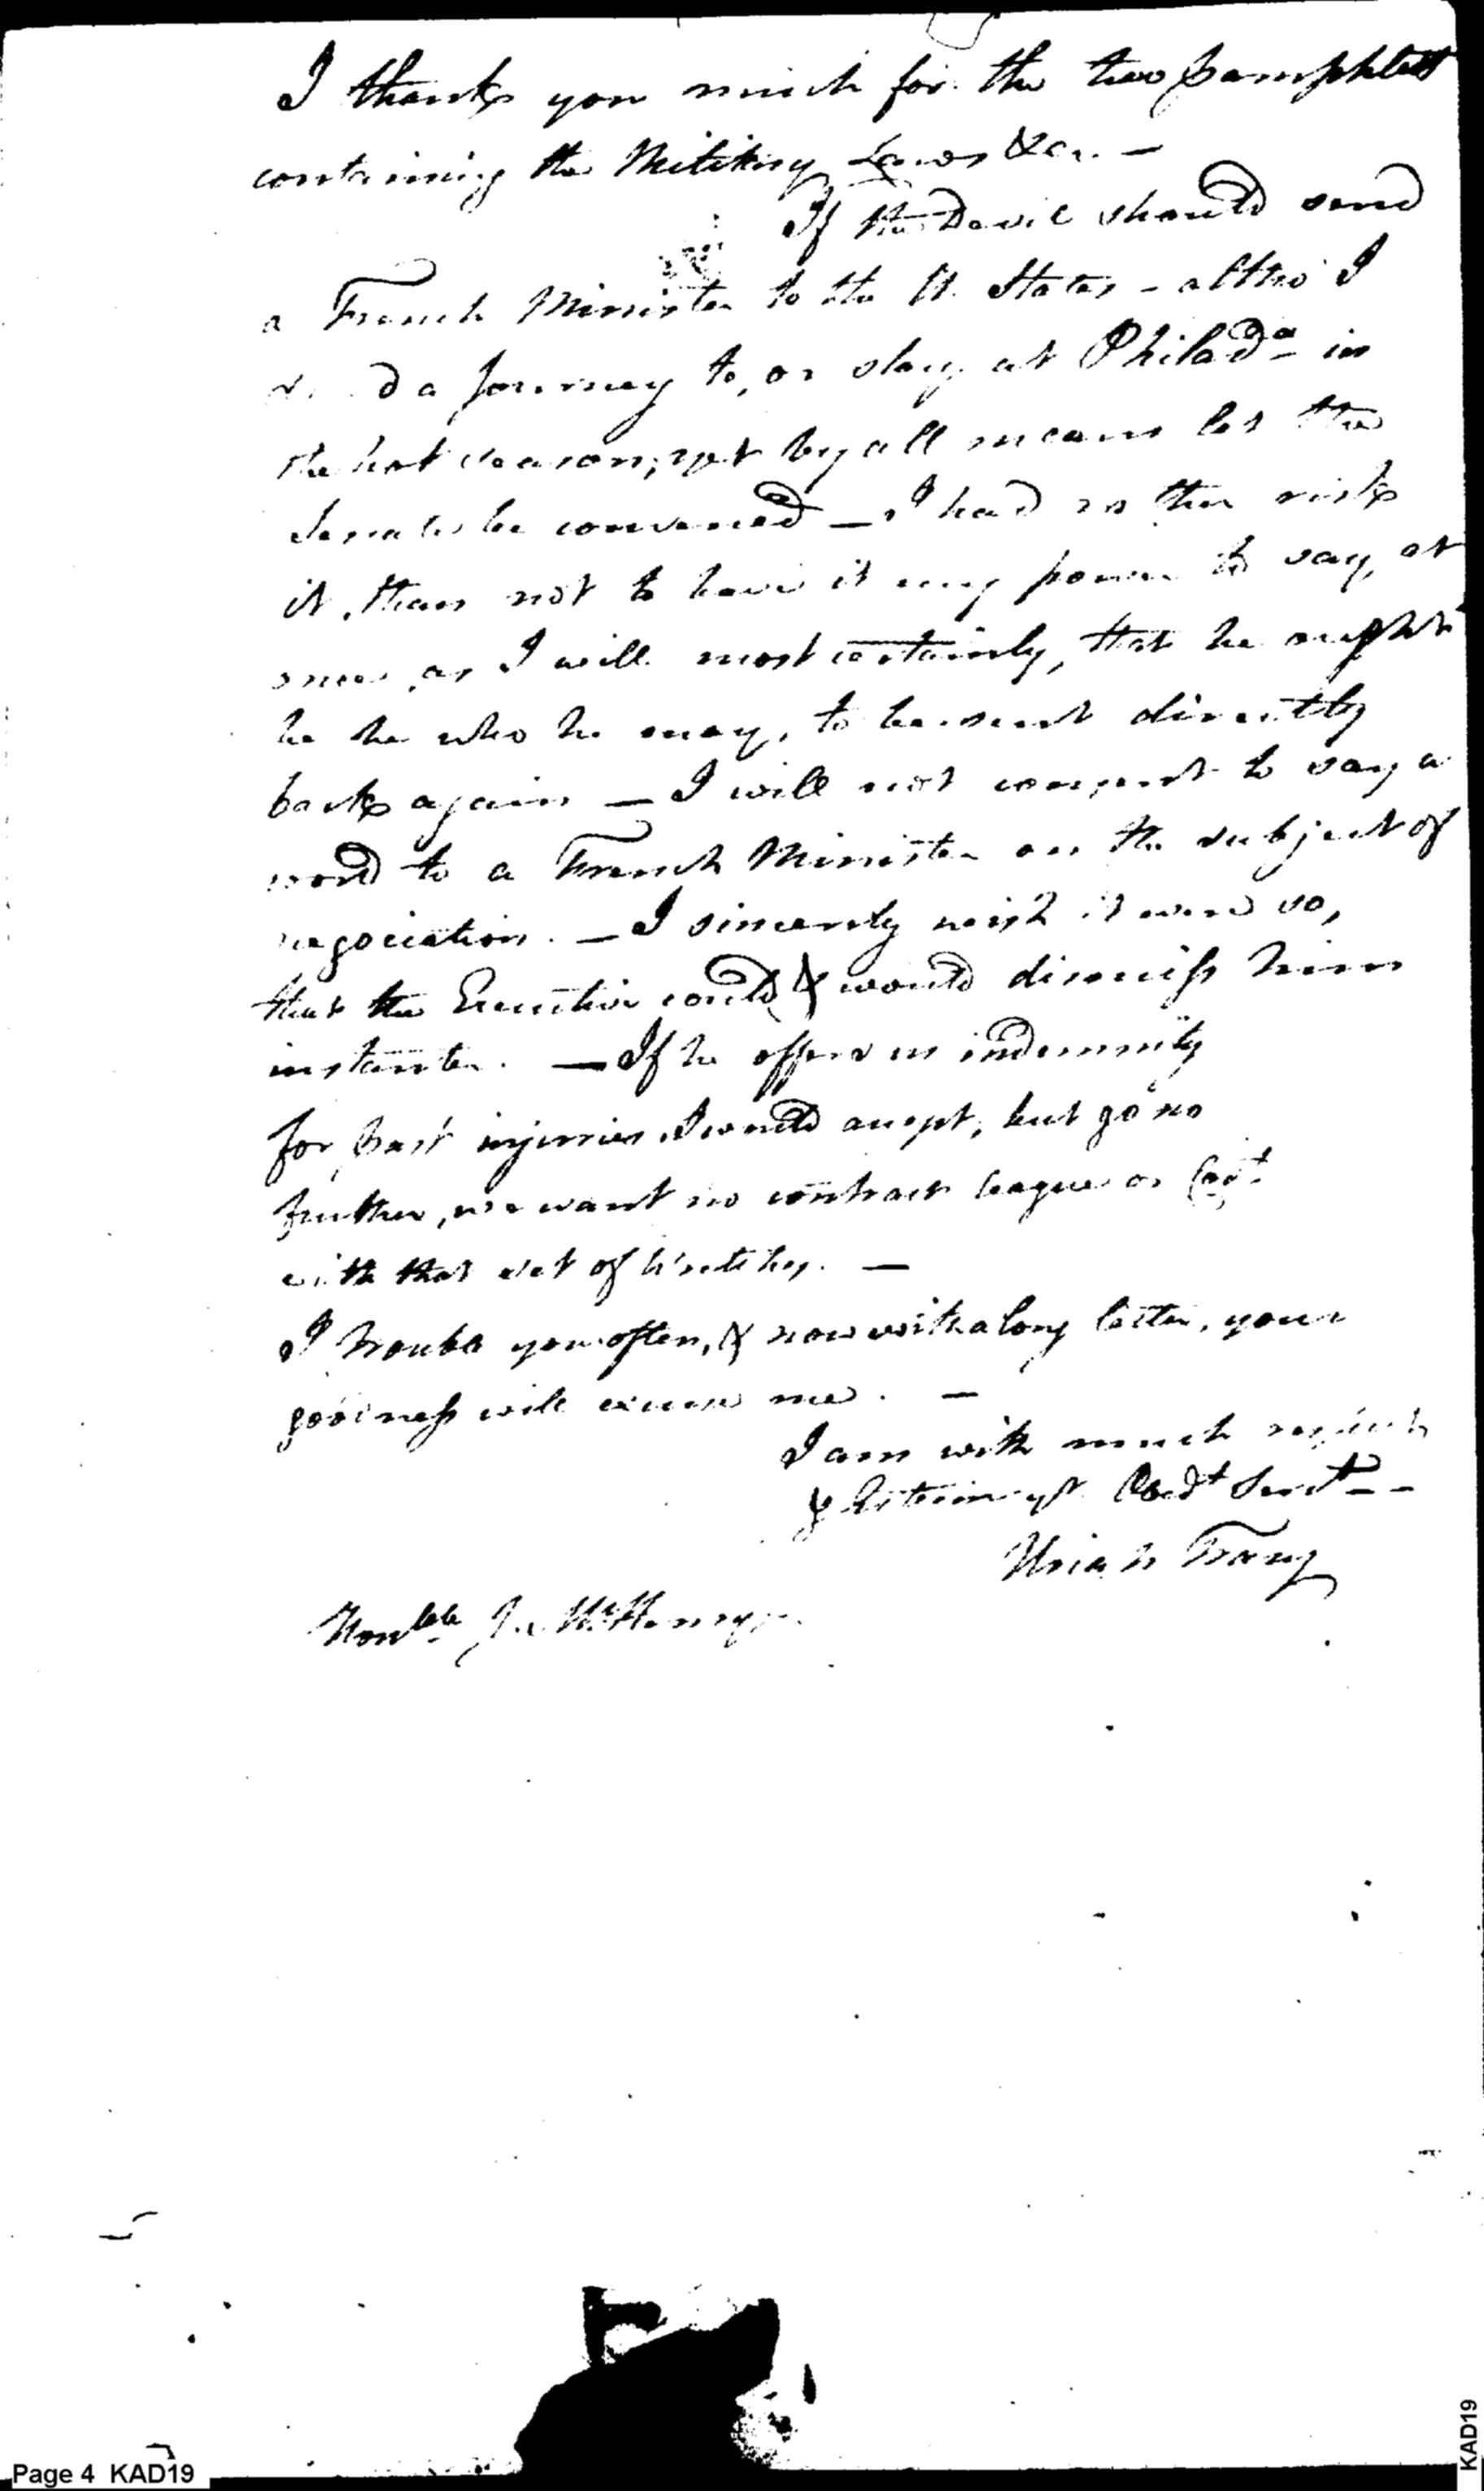 I thank you much for the two pamphlets
containing the Military Laws &ca. —
If the Devil should send
a French Minister to the U. States - altho' I
d a Journey to, or stay at Philada. in
the hot season, yet by all means let the
Senate be convened — I had rather risk
it, than not to have it my power to say, at
once, as I will most certainly, that he ought
be he who he may, to be sent directly
back again — I will not consent to say a
word to a French Minister on the subject of
negociation. — I sincerely wish it were so,
that the Executive could & would dismiss him
instanter. — If he offers us indemnity
for past injuries, I would accept, but go no
further, we want no contract league or
with that set of wretches. —
I trouble you often, & now with a long letter, your
goodness will excuse me. —
I am with much respect
& Esteem yr. Obedt. Servt. - -
Uriah Tracy
Honble. Js. McHenry.
Page 4 KAD19
KAD19